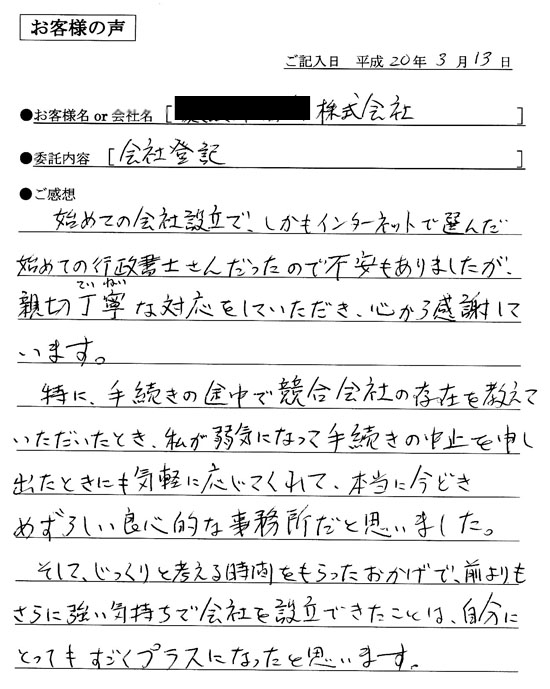 お客様の声
ご記入日 平成20年3月13日
●お客様名or会社名 [ 株式会社 ]
●委託内容 [ 会社登記 ]
●ご感想
始めての会社設立で、しかもインターネットで選んだ
始めての行政書士さんだったので不安もありましたが、
ていねい
親切丁寧な対応をしていただき、心から感謝して
います。
特に、手続きの途中で競合会社の存在を教えて
いただいたとき、私が弱気になって手続きの中止を申し
出たときにも気軽に応じてくれて、本当に今どき
めずらしい良心的な事務所だと思いました。
そして、じっくりと考える時間をもらったおかげで、前よりも
さらに強い気持ちで会社を設立できたことは、自分に
とってもすごくプラスになったと思います。